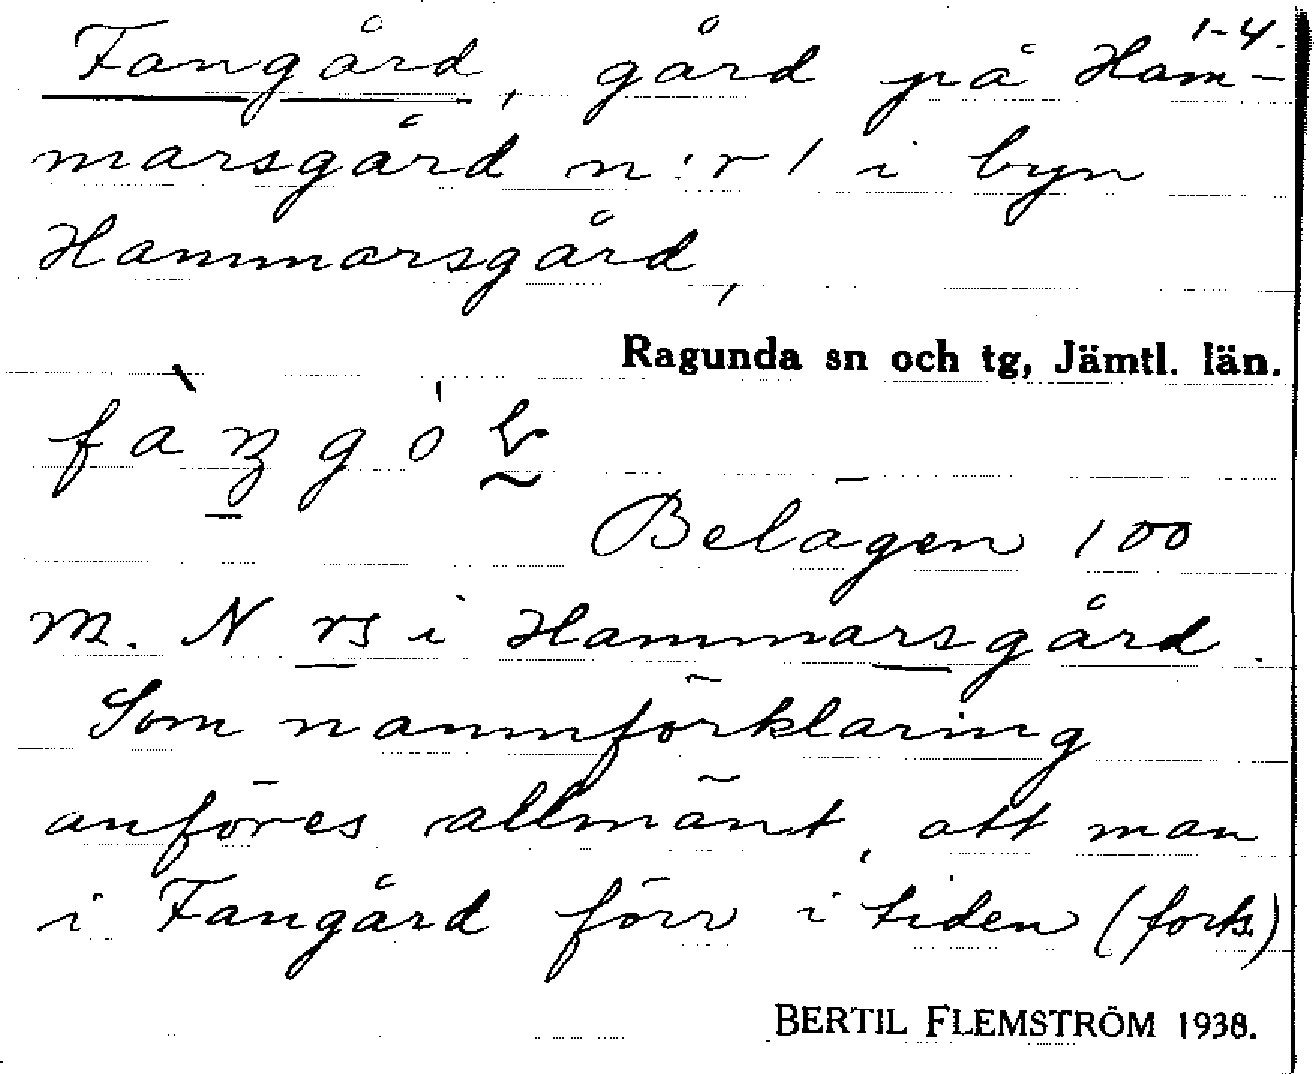 1-4.
Fangård, gård på Ham-
marsgård n:r 1 i byn
Hammarsgård,
Ragunda sn och tg, Jämtl. län.
Belägen 100
m. N rs i Hammarsgård.
Som namnförklaring
anföres allmänt, att man
i Fangård förr i tiden (forts.)
BERTIL FLEMSTRÖM 1938.